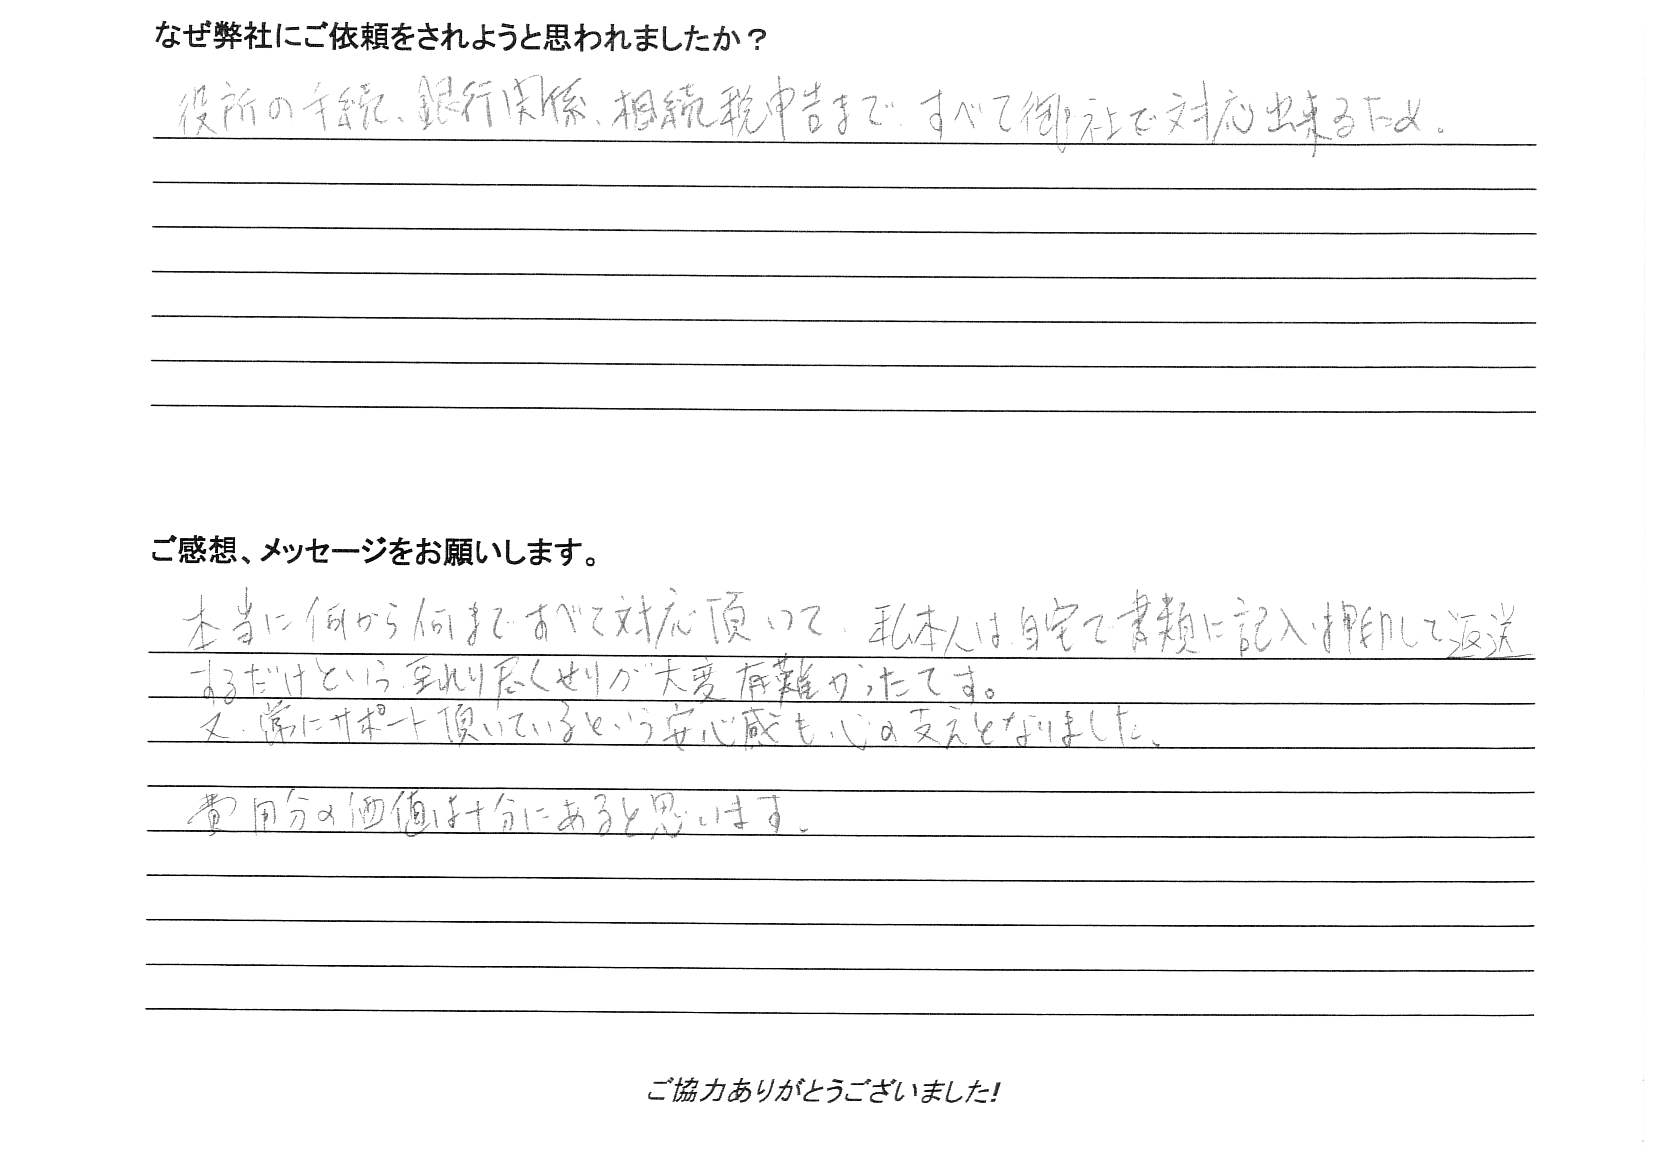 なぜ弊社にご依頼をされようと思われましたか？
役所の手続、銀行関係、相続税申告まで、すべて御社で対応出来るため。
ご感想、メッセージをお願いします。
本当に何から何まですべて対応頂いて、私本人は自宅で書類に記入・押印して返送
するだけという至れり尽くせりが大変有難かったです。
又、常にサポート頂いているという安心感も、心の支えとなりました。
費用分の価値は十分にあると思います。
ご協力ありがとうございました!